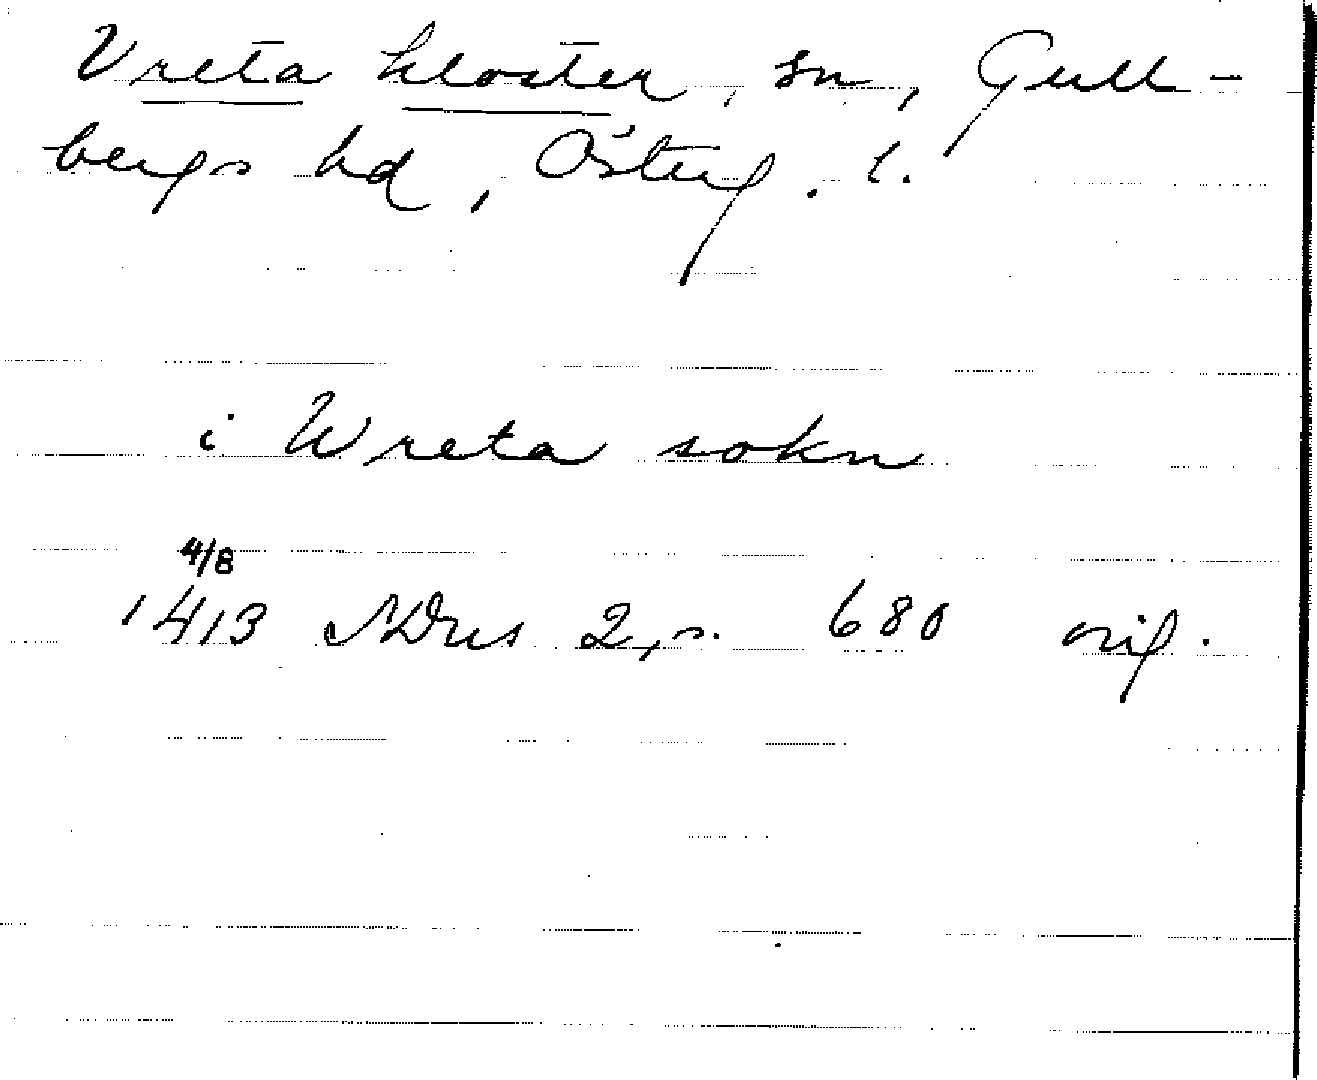 Vreta kloster, sn, Gull-
bergs hd, Österg. l.
i Wreta sokn
4/8
1413 SDns 2, s. 680 orig.